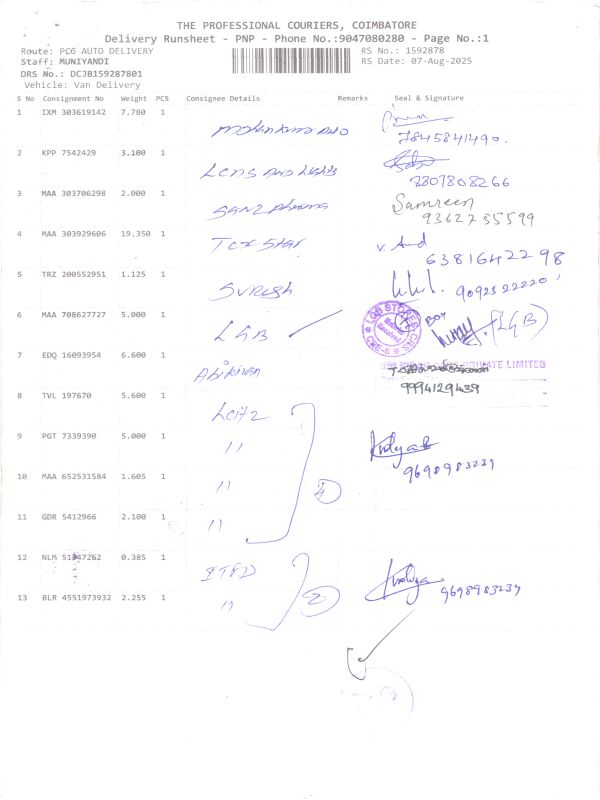 THE PROFESSIONAL COURIERS, COIMBATORE
Delivery Runsheet - PNP - Phone No.:9047080280 - Page No.:1
Route: PCG AUTO DELIVERY RS No.: 1592878
Staff: MUNIYANDI RS Date: 07-Aug-2025
DRS No.: DCJB159287801
Vehicle: Van Delivery
S No Consignment No Weight PCS Consignee Details Remarks Seal & Signature
1 IXM 303619142 7.780 1
7845841490.
2 KPP 7542429 3.100 1 Lens and Lights
8807808266
3 MAA 303706298 2.000 1 Samreen
9362755599
4 MAA 303929606 19.350 1 Tex Star
6381642298
5 TRZ 200552951 1.125 1 Suresh
9092522220
6 MAA 708627727 5.000 1 LGB LGB STORES (LGB)
7 EDQ 16093954 6.600 1 Abikiran PRIVATE LIMITED
9994129439
8 TVL 197670 5.600 1 Leitz
9 PGT 7339390 5.000 1 "
9698983239
10 MAA 652531584 1.605 1 " 4
11 GDR 5412966 2.100 1 "
12 NLM 1.385 1
13 BLR 4551973932 2.255 1 " 2 9698983239